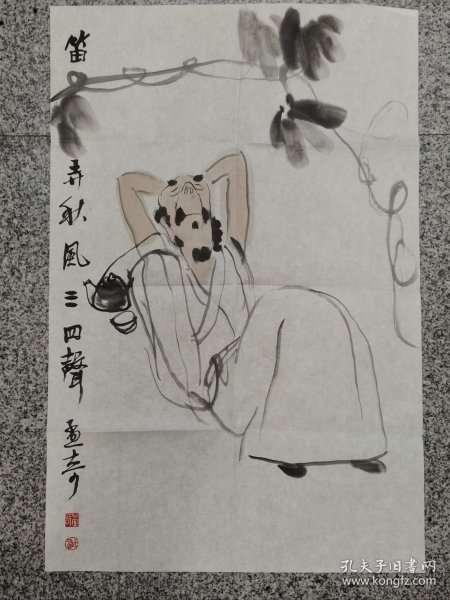 笛弄秋风三四聲
孔夫子旧书网
www.kongfz.com